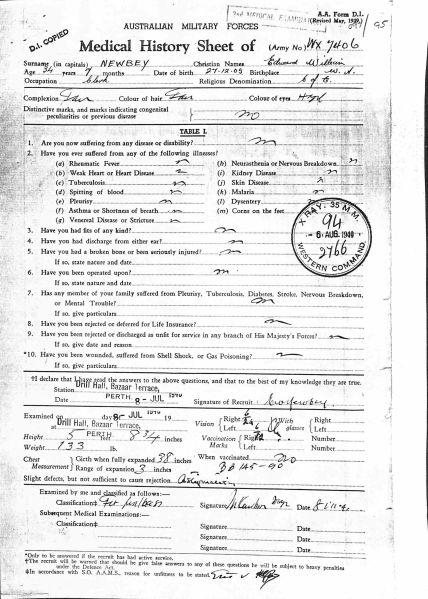 2nd MEDICAL EXAMINATION
A.A. Form D.1.
(Revised May, 1939.)
95
D.1. COPIED
AUSTRALIAN MILITARY FORCES
Medical History Sheet of (Army No) WX 7406
Surname (in capitals) NEWBEY Christian Names Edward William
Age 34 years 7 months Date of birth 27-12-05 Birthplace W.A.
Occupation Clerk Religious Denomination C of E.
Complexion Fair Colour of hair Fair Colour of eyes Hazel
Distinctive marks, and marks indicating congenital
peculiarities or previous disease No
TABLE I.
1. Are you now suffering from any disease or disability? n
2. Have you ever suffered from any of the following illnesses?
(a) Rheumatic Fever n (h) Neurasthenia or Nervous Breakdown n
(b) Weak Heart or Heart Disease n (i) Kidney Disease n
(c) Tuberculosis n (j) Skin Disease n
(d) Spitting of blood n (k) Malaria n
(e) Pleurisy n (l) Dysentery n
(f) Asthma or Shortness of breath n (m) Corns on the feet
(g) Venereal Disease or Stricture n
X RAY. 35 M.M.
94
6 AUG 1940
2766
WESTERN COMMAND
3. Have you had fits of any kind? n
4. Have you had discharge from either ear? n
5. Have you had a broken bone or been seriously injured? n
If so, state nature and date
6. Have you been operated upon? n
If so, state nature and date
7. Has any member of your family suffered from Pleurisy, Tuberculosis, Diabetes, Stroke, Nervous Breakdown,
or Mental Trouble? n
If so, give particulars
8. Have you been rejected or deferred for Life Insurance? n
9. Have you been rejected or discharged as unfit for service in any branch of His Majesty's Forces? n
If so, give date and reason
*10. Have you been wounded, suffered from Shell Shock, or Gas Poisoning? n
If so, give particulars
†I declare that I have read the answers to the above questions, and that to the best of my knowledge they are true.
Station Drill Hall, Bazaar Terrace,
Date PERTH 8 - JUL 1940 Signature of Recruit
Examined on day 8 - JUL 1940 19
at Drill Hall, Bazaar Terrace,
PERTH
Vision Right 6 With glasses Right
Left 6 Left
Height 5 8 3/4 inches
Weight 133 lb.
Vaccination Marks Right Number
Left Number
Chest Girth when fully expanded 38 inches When vaccinated no
Measurement Range of expansion 3 inches
Slight defects, but not sufficient to cause rejection
Examined by me and classified as follows:—
Classification‡ Signature Date
Subsequent Medical Examinations:—
Classification‡ Signature Date
Signature Date
Signature Date
Signature Date
*Only to be answered if the recruit has had active service.
†The recruit will be warned that should he give false answers to any of these questions he will be subject to heavy penalties
under the Defence Act.
‡In accordance with S.O. A.A.M.S., reason for unfitness to be stated.